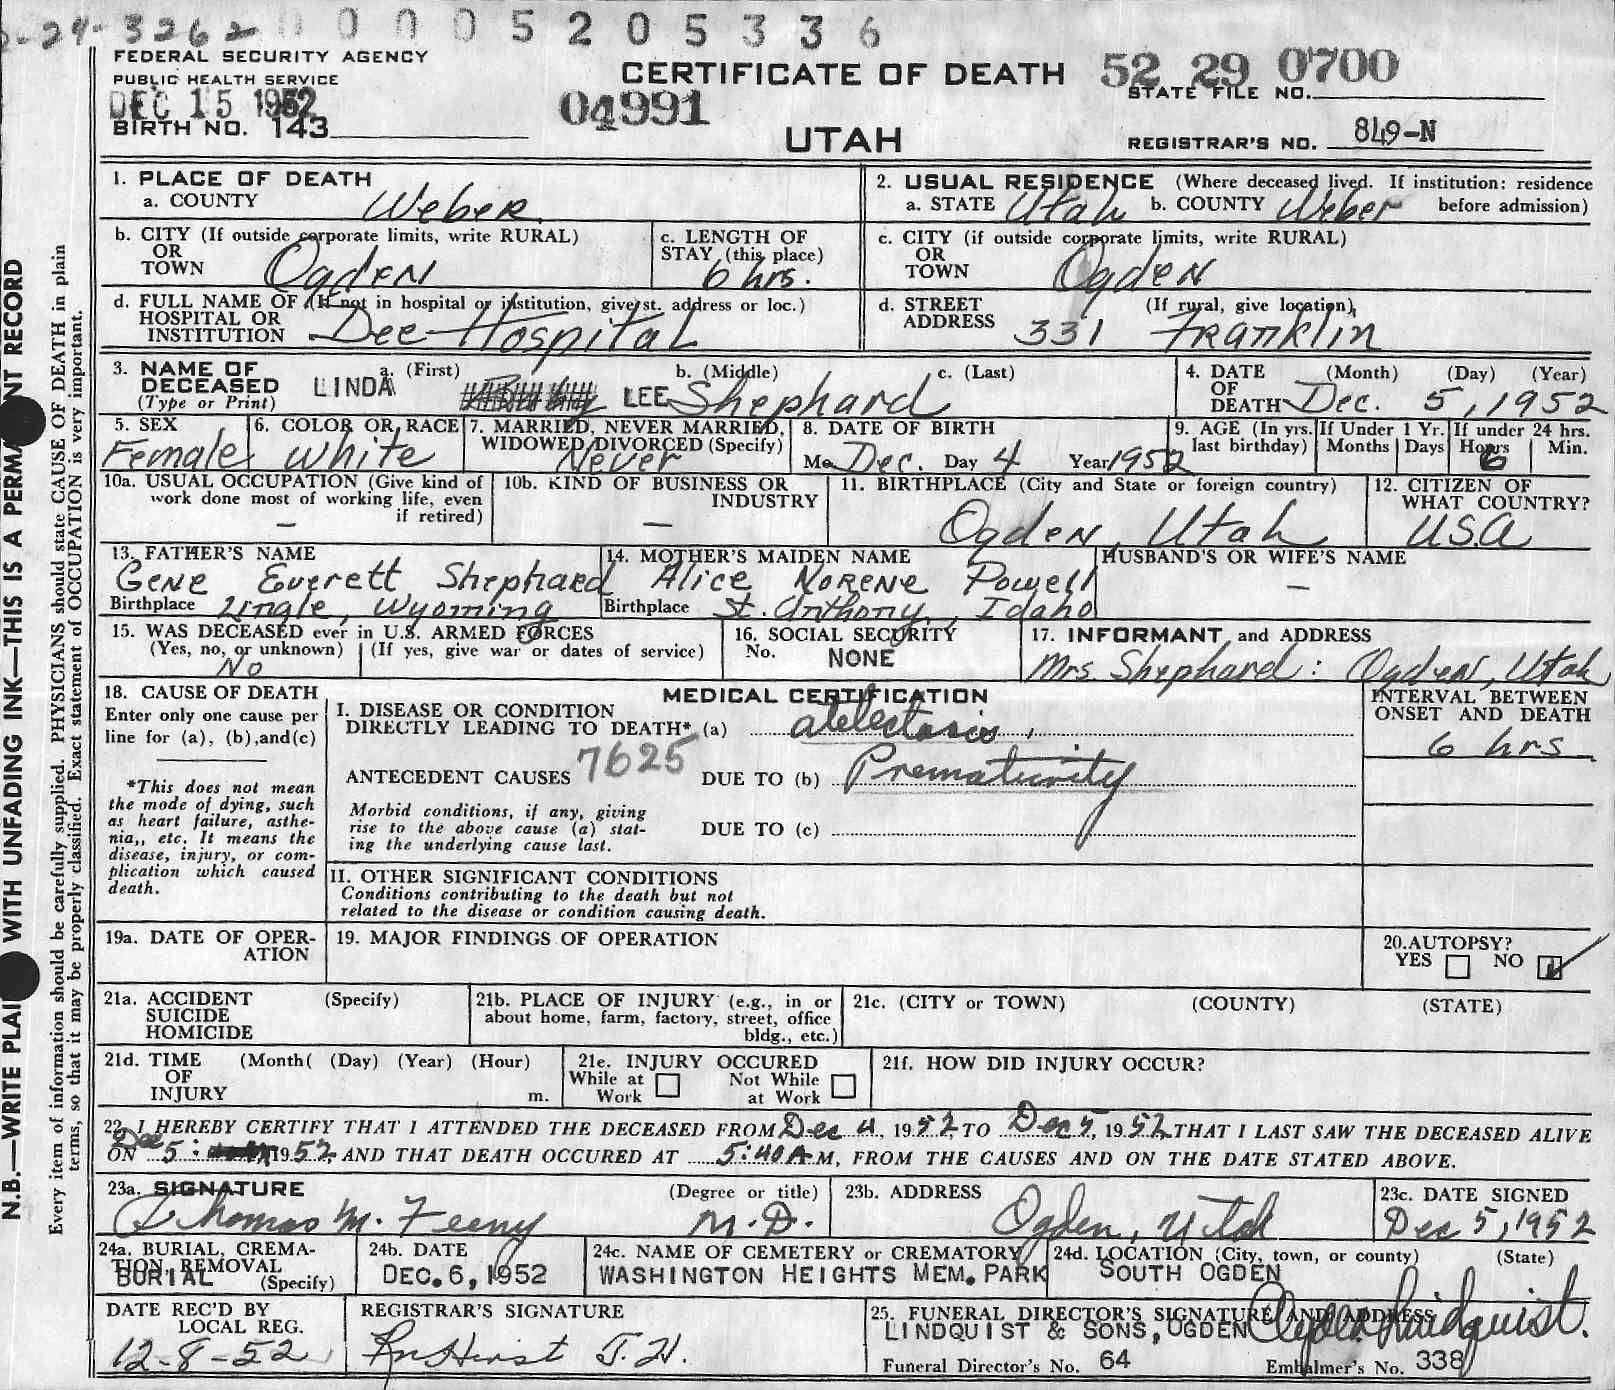 -24-3262 0 0 0 0 5 2 0 5 3 3 6
FEDERAL SECURITY AGENCY
PUBLIC HEALTH SERVICE
DEC 15 1952
BIRTH NO. 143
CERTIFICATE OF DEATH
04991
UTAH
52 29 0700
STATE FILE NO.
REGISTRAR'S NO. 849-N
1. PLACE OF DEATH
a. COUNTY Weber
2. USUAL RESIDENCE (Where deceased lived. If institution: residence
a. STATE Utah b. COUNTY Weber before admission)
b. CITY (If outside corporate limits, write RURAL)
OR
TOWN Ogden
c. LENGTH OF
STAY (this place)
6 hrs.
c. CITY (if outside corporate limits, write RURAL)
OR
TOWN Ogden
d. FULL NAME OF (If not in hospital or institution, give st. address or loc.)
HOSPITAL OR
INSTITUTION Dee Hospital
d. STREET (If rural, give location)
ADDRESS 331 Franklin
3. NAME OF a. (First) b. (Middle) c. (Last)
DECEASED LINDA LEE Shephard
(Type or Print)
4. DATE (Month) (Day) (Year)
OF
DEATH Dec. 5, 1952
5. SEX
Female
6. COLOR OR RACE
White
7. MARRIED, NEVER MARRIED,
WIDOWED, DIVORCED (Specify)
Never
8. DATE OF BIRTH
Mo Dec. Day 4 Year 1952
9. AGE (In yrs. last birthday)
If Under 1 Yr.
Months Days
If under 24 hrs.
Hours Min.
6
10a. USUAL OCCUPATION (Give kind of
work done most of working life, even
if retired)
–
10b. KIND OF BUSINESS OR
INDUSTRY
–
11. BIRTHPLACE (City and State or foreign country)
Ogden, Utah
12. CITIZEN OF
WHAT COUNTRY?
USA
13. FATHER'S NAME
Gene Everett Shephard
Birthplace Lingle, Wyoming
14. MOTHER'S MAIDEN NAME
Alice Norene Powell
Birthplace St. Anthony, Idaho
HUSBAND'S OR WIFE'S NAME
–
15. WAS DECEASED ever in U.S. ARMED FORCES
(Yes, no, or unknown) (If yes, give war or dates of service)
No
16. SOCIAL SECURITY
No. NONE
17. INFORMANT and ADDRESS
Mrs. Shephard: Ogden, Utah
18. CAUSE OF DEATH
Enter only one cause per
line for (a), (b), and(c)
*This does not mean
the mode of dying, such
as heart failure, asthe-
nia,, etc. It means the
disease, injury, or com-
plication which caused
death.
MEDICAL CERTIFICATION
I. DISEASE OR CONDITION
DIRECTLY LEADING TO DEATH* (a) atelectasis,
ANTECEDENT CAUSES 7625 DUE TO (b) Prematurity
Morbid conditions, if any, giving
rise to the above cause (a) stat-
ing the underlying cause last.
DUE TO (c)
INTERVAL BETWEEN
ONSET AND DEATH
6 hrs
II. OTHER SIGNIFICANT CONDITIONS
Conditions contributing to the death but not
related to the disease or condition causing death.
19a. DATE OF OPER-
ATION
19. MAJOR FINDINGS OF OPERATION
20. AUTOPSY?
YES NO
21a. ACCIDENT (Specify)
SUICIDE
HOMICIDE
21b. PLACE OF INJURY (e.g., in or
about home, farm, factory, street, office
bldg., etc.)
21c. (CITY or TOWN) (COUNTY) (STATE)
21d. TIME (Month( (Day) (Year) (Hour)
OF
INJURY m.
21e. INJURY OCCURED
While at Work Not While at Work
21f. HOW DID INJURY OCCUR?
22. I HEREBY CERTIFY THAT I ATTENDED THE DECEASED FROM Dec 4, 1952, TO Dec 5, 1952 THAT I LAST SAW THE DECEASED ALIVE
ON Dec 5: 1952, AND THAT DEATH OCCURED AT 5:40 A M, FROM THE CAUSES AND ON THE DATE STATED ABOVE.
23a. SIGNATURE (Degree or title)
Thomas M. Feeny M.D.
23b. ADDRESS
Ogden, Utah
23c. DATE SIGNED
Dec 5, 1952
24a. BURIAL, CREMA-
TION, REMOVAL
BURIAL (Specify)
24b. DATE
DEC. 6, 1952
24c. NAME OF CEMETERY or CREMATORY
WASHINGTON HEIGHTS MEM. PARK
24d. LOCATION (City, town, or county) (State)
SOUTH OGDEN
DATE REC'D BY
LOCAL REG.
12-8-52
REGISTRAR'S SIGNATURE
25. FUNERAL DIRECTOR'S SIGNATURE AND ADDRESS
LINDQUIST & SONS, OGDEN Lindquist.
Funeral Director's No. 64 Embalmer's No. 338
N.B.—WRITE WITH UNFADING INK—THIS IS A RECORD
Every item of information should be carefully supplied. PHYSICIANS should state CAUSE OF DEATH in plain
terms, so that it may be properly classified. Exact statement of OCCUPATION is very important.